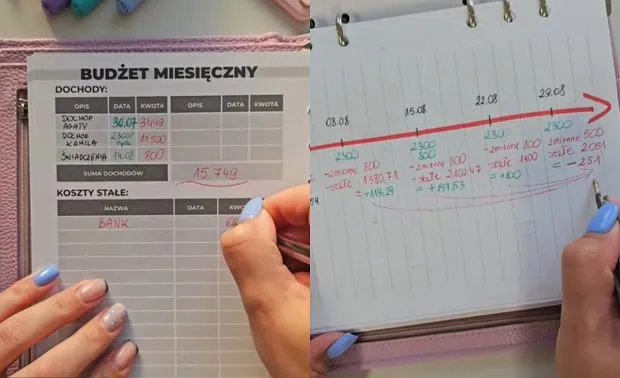 BUDŻET MIESIĘCZNY
DOCHODY:
OPIS DATA KWOTA OPIS DATA KWOTA
DOCHÓD AGATY 30.07 3449
DOCHÓD KAMILA 2300/tydz 11500
ŚWIADCZENIA 14.08 800
SUMA DOCHODÓW 15.749
KOSZTY STAŁE:
NAZWA DATA KWO
BANK
08.08 15.08 22.08 29.08
2300 2300 2300 2300
800
-zmienne 800 -zmienne 800 -zmienne 800 -zmienne 500
-stałe 1380.71 -stałe 2102.47 -stałe 1400 -stałe 2051
= +119,29 = +197.53 = +100 = -251